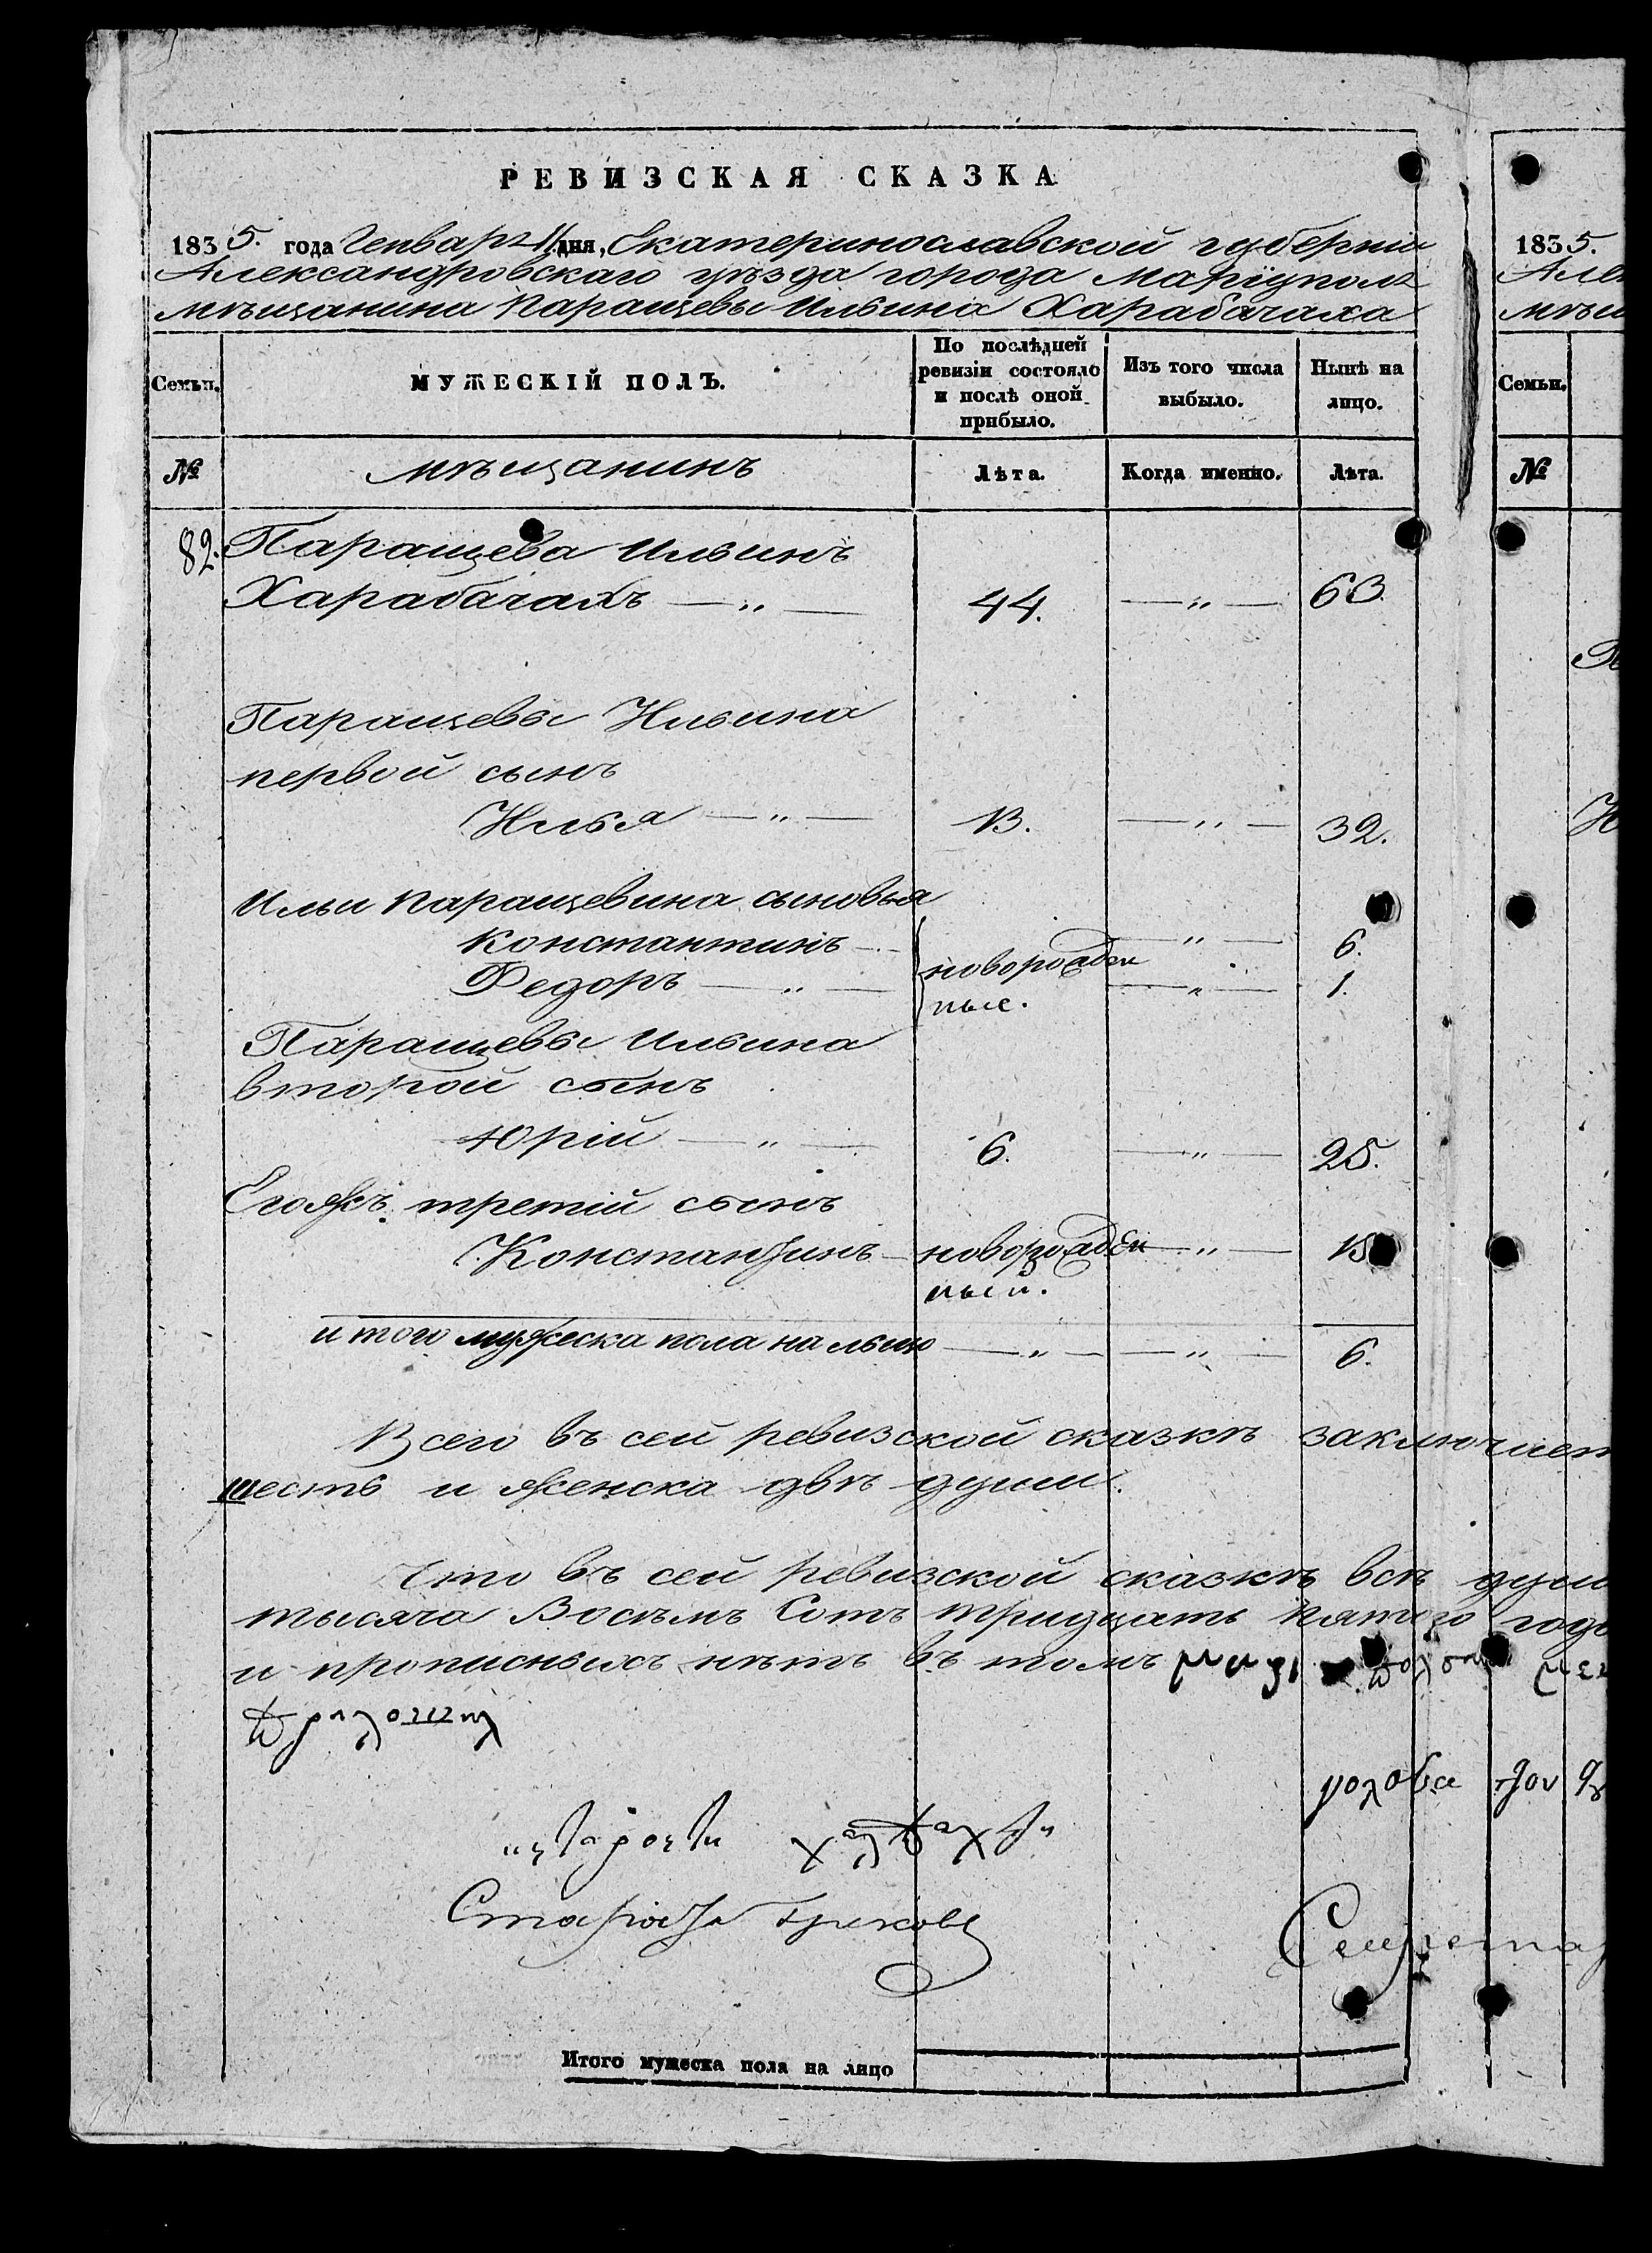 РЕВИЗСКАЯ СКАЗКА
1835. года Генваря 11 дня, Екатеринославской губерніи
Александровскаго уѣзда города Маріуполя
мѣщанина Паращевы Ильина Харабачаха
Семьи.
МУЖЕСКІЙ ПОЛЪ.
По послѣдней ревизіи состояло и послѣ оной прибыло.
Изъ того числа выбыло.
Нынѣ на лицо.
№
мѣщанинъ
Лѣта.
Когда именно.
Лѣта.
82. Паращева Ильинъ
Харабачахъ — „ — 44. — „ — 63.
Паращевы Ильина
первой сынъ
Илья — „ — 13. — „ — 32.
Ильи Паращевина сыновья
Константинъ — „ — 6.
Федоръ — „ — новорожден — „ — 1.
ные.
Паращевы Ильина
второй сынъ
Юрій — „ — 6. — „ — 25.
Егожъ третій сынъ
Константинъ — новорожден — „ — 15
ный.
итого мужеска пола на лицо — „ — — „ — 6.
Всего въ сей ревизской сказкѣ заключает
шесть и женска двѣ души.
Что въ сей ревизской сказкѣ всѣ души
тысяча Восѣмъ Сотъ тридцать пятого года
и прописныхъ нѣтъ въ томъ
Староста
Секретар
Итого мужеска пола на лицо
1835.
Але
мѣщ
Семьи.
№